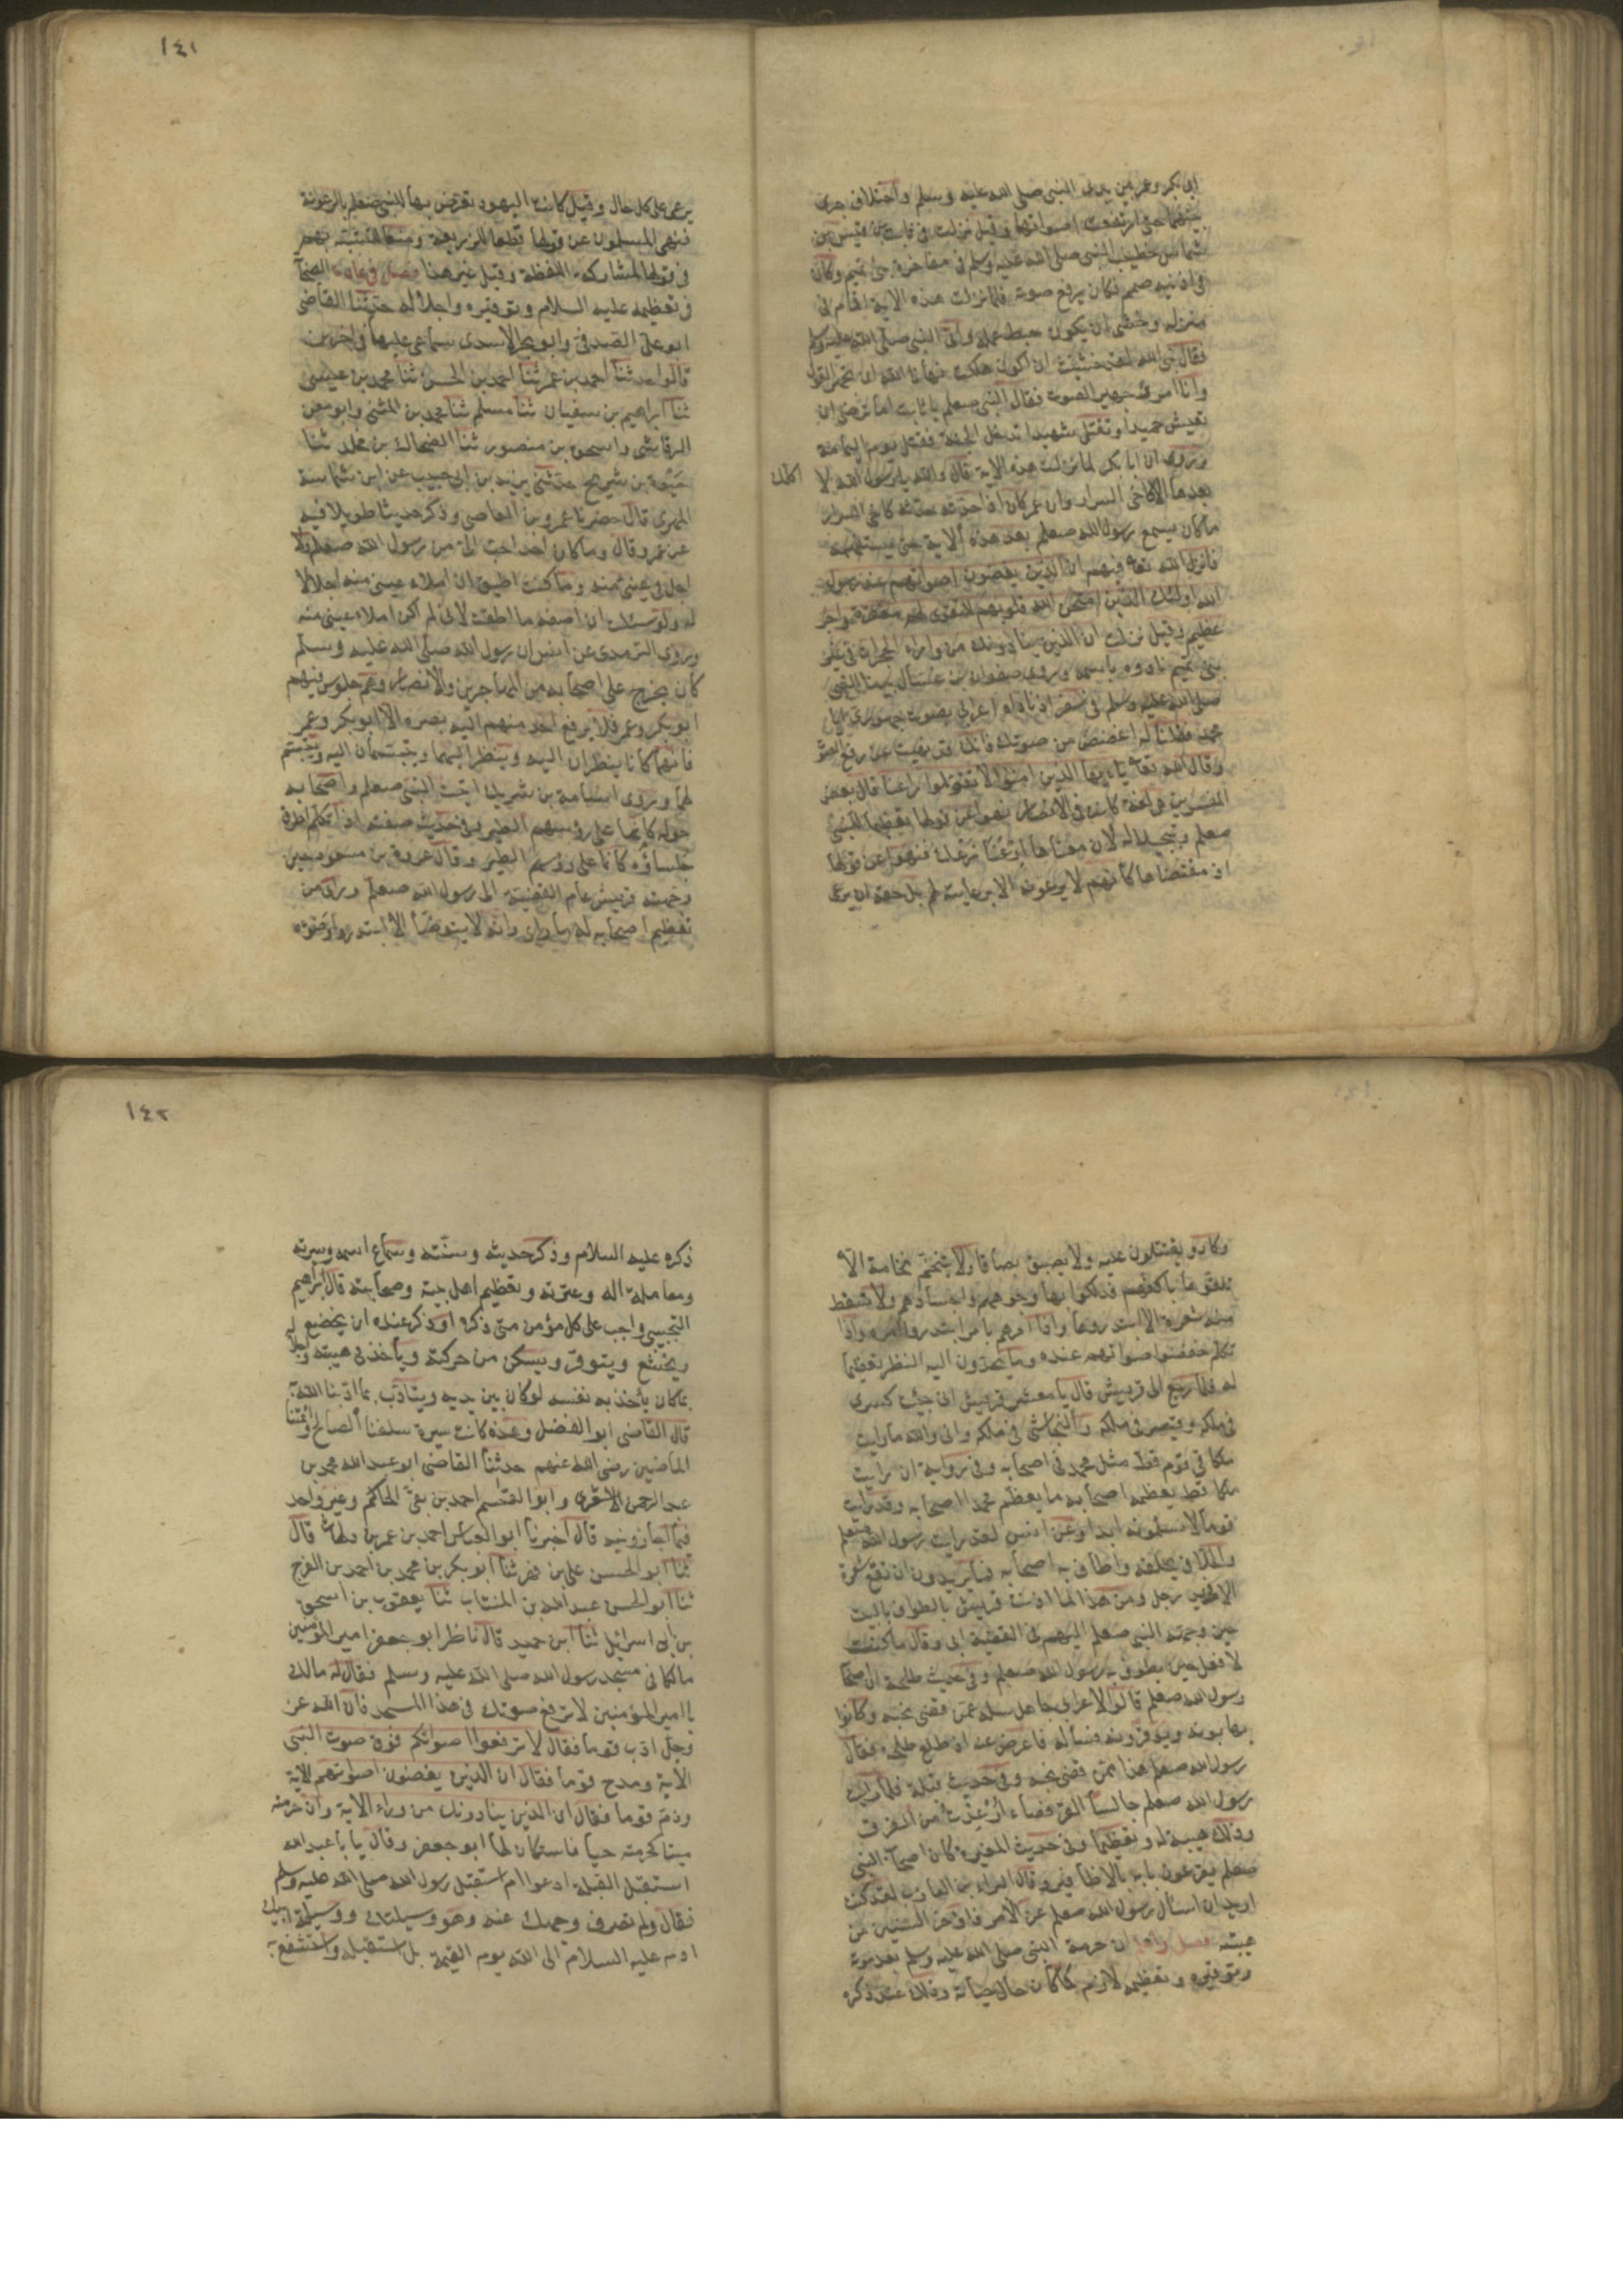 ابى بكر وعمر بين يدى النبى صلى الله عليه وسلم واختلاف جرى
بينهما حتى ارتفعت اصواتهما وقيل نزلت فى ثابت بن قيس بن
شماس خطيب النبى صلى الله عليه وسلم فى مفاخرة بنى تميم وكان
فى اذنيه صمم فكان يرفع صوته فلما نزلت هذه الاية اقام فى
منزله وخشى ان يكون حبط عمله واتى النبى صلى الله عليه وسلم
فقال يا نبى الله لقد خشيت ان اكون هلكت نهانا الله ان نجهر بالقول
وانا امرؤ جهير الصوت فقال النبى صعلم يا ثابت اما ترضى ان
تعيش حميدا وتقتل شهيدا وتدخل الجنة فقتل يوم اليمامة
وروى ان ابا بكر لما نزلت هذه الاية قال والله يا رسول الله لا
اكلمك
بعدها الا كاخى السرار وان عمر كان اذا حدثه حدثه كاخى السرار
ما كان يسمع رسول الله صعلم بعد هذه الاية حتى يستفهمه
فانزل الله تعا فيهم ان الذين يغضون اصواتهم عند رسول
الله اولئك الذين امتحن الله قلوبهم للتقوى لهم مغفرة واجر
عظيم وقيل نزلت ان الذين ينادونك من وراء الحجرات فى غير
بنى تميم نادوه باسمه وروى صفوان بن عسال بينا النبى
صلى الله عليه وسلم فى سفر اذ ناداه اعرابى بصوت جهورى ايا
محمد فقلنا له اغضض من صوتك فانك قد نهيت عن رفع الصوت
وقال الله تعا يا ايها الذين امنوا لا تقولوا راعنا قال بعض
المفسرين هى لغة كانت فى الانصار نهوا عن قولها تعظيما للنبى
صعلم وتبجيلا له لان معناها ارعنا نرعك فنهوا عن قولها
اذ مقتضاها كانهم لا يرعونه الا برعايته لهم بل حقه ان يرعى
١٤١
يرعى على كل حال وقيل كانت اليهود تعرض بها للنبى صعلم بالرعونة
فنهى المسلمون عن قولها قطعا للذريعة ومنعا للتشبه بهم
فى قولها لمشاركة اللفظة وقيل غير هذا فصل فى عادة الصحابة
فى تعظيمه عليه السلام وتوقيره واجلاله حدثنا القاضى
ابو على الصدفى وابو بحر الاسدى بسماعى عليهما فى اخرين
قالوا حدثنا احمد بن عمر ثنا احمد بن الحسن ثنا محمد بن عيسى
ثنا ابراهيم بن سفيان ثنا مسلم ثنا محمد بن المثنى وابو معن
الرقاشى واسحق بن منصور ثنا الضحاك بن مخلد ثنا
حيوة بن شريح حدثنى يزيد بن ابى حبيب عن ابن شماسة
المهرى قال حضرنا عمرو بن العاصى وذكر حديثا طويلا فيه
عن عمرو قال وما كان احد احب الى من رسول الله صعلم ولا
اجل فى عينى منه وما كنت اطيق ان املاء عينى منه اجلالا
له ولو سئلت ان اصفه ما اطقت لانى لم اكن املاء عينى منه
وروى الترمذى عن انس ان رسول الله صلى الله عليه وسلم
كان يخرج على اصحابه من المهاجرين والانصار وهم جلوس فيهم
ابو بكر وعمر فلا يرفع احد منهم اليه بصره الا ابو بكر وعمر
فانهما كانا ينظران اليه وينظر اليهما ويتبسمان اليه ويتبسم
لهما وروى اسامة بن شريك اتيت النبى صعلم واصحابه
حوله كانما على رؤسهم الطير وفى حديث صفته اذا تكلم اطرق
جلساؤه كانما على رؤسهم الطير وقال عروة بن مسعود حين
وجهته قريش عام القضية الى رسول الله صعلم وراى من
تعظيم اصحابه له ما راى وانه لا يتوضأ الا ابتدروا وضوءه
وكادوا يقتتلون عليه ولا يبصق بصاقا ولا يتنخم نخامة الا
تلقوها باكفهم فدلكوا بها وجوههم واجسادهم ولا تسقط
منه شعرة الا ابتدروها واذا امرهم بامر ابتدروا امره واذا
تكلم خفضوا اصواتهم عنده وما يحدون اليه النظر تعظيما
له فلما رجع الى قريش قال يا معشر قريش انى جئت كسرى
فى ملكه وقيصر فى ملكه والنجاشى فى ملكه وانى والله ما رايت
ملكا فى قوم قط مثل محمد فى اصحابه وفى رواية ان رايت
ملكا قط يعظمه اصحابه ما يعظم محمدا اصحابه وقد رايت
قوما لا يسلمونه ابدا وعن انس لقد رايت رسول الله صعلم
والحلاق يحلقه واطاف به اصحابه فما يريدون ان تقع شعرة
الا فى يد رجل ومن هذا لما اذنت قريش بالطواف بالبيت
حين وجهه النبى صعلم اليهم فى القضية ابى وقال ما كنت
لافعل حتى يطوف به رسول الله صعلم وفى حديث طلحة ان اصحاب
رسول الله صعلم قالوا لاعرابى جاهل سله عمن قضى نحبه وكانوا
يهابونه ويوقرونه فسأله فاعرض عنه اذ طلع طلحة فقال
رسول الله صعلم هذا ممن قضى نحبه وفى حديث قيلة فلما رايت
رسول الله صعلم جالسا القرفصاء ارعدت من الفرق
وذلك هيبة له وتعظيما وفى حديث المغيرة كان اصحاب النبى
صعلم يقرعون بابه بالاظافير وقال البراء بن العازب لقد كنت
اريد ان اسأل رسول الله صعلم عن الامر فاوخر السنين من
هيبته فصل واعلم ان حرمة النبى صلى الله عليه وسلم بعد موته
وتوقيره وتعظيمه لازم كما كان حال حياته وذلك عند ذكره
١٤٢
ذكره عليه السلام وذكر حديثه وسنته وسماع اسمه وسيرته
ومعاملة اله وعترته وتعظيم اهل بيته وصحابته قال ابراهيم
التجيبى واجب على كل مؤمن متى ذكره او ذكر عنده ان يخضع له
ويخشع ويتوقر ويسكن من حركته ويأخذ فى هيبته واجلاله
بما كان يأخذ به نفسه لو كان بين يديه ويتادب بما ادبنا الله به
قال القاضى ابو الفضل وهذه كانت سيرة سلفنا الصالح وائمتنا
الماضين رضى الله عنهم حدثنا القاضى ابو عبد الله محمد بن
عبد الرحمن الاشعرى وابو القسم احمد بن بقى الحاكم وغير واحد
فيما اجازونيه قال اخبرنا ابو العباس احمد بن عمر بن دلهاث قال
ثنا ابو الحسن على بن فهر ثنا ابو بكر بن محمد بن احمد بن الفرج
ثنا ابو الحسن عبد الله بن المنتاب ثنا يعقوب بن اسحق
بن ابى اسرائيل ثنا ابن حميد قال ناظر ابو جعفر امير المؤمنين
مالكا فى مسجد رسول الله صلى الله عليه وسلم فقال له مالك
يا امير المؤمنين لا ترفع صوتك فى هذا المسجد فان الله عز
وجل ادب قوما فقال لا ترفعوا اصواتكم فوق صوت النبى
الآية ومدح قوما فقال ان الذين يغضون اصواتهم الآية
وذم قوما فقال ان الذين ينادونك من وراء الآية وان حرمته
ميتا كحرمته حيا فاستكان لها ابو جعفر وقال يا با عبد الله
استقبل القبلة وادعوا ام استقبل رسول الله صلى الله عليه وسلم
فقال ولم تصرف وجهك عنه وهو وسيلتك ووسيلة ابيك
ادم عليه السلام الى الله يوم القيمة بل استقبله واستشفع به